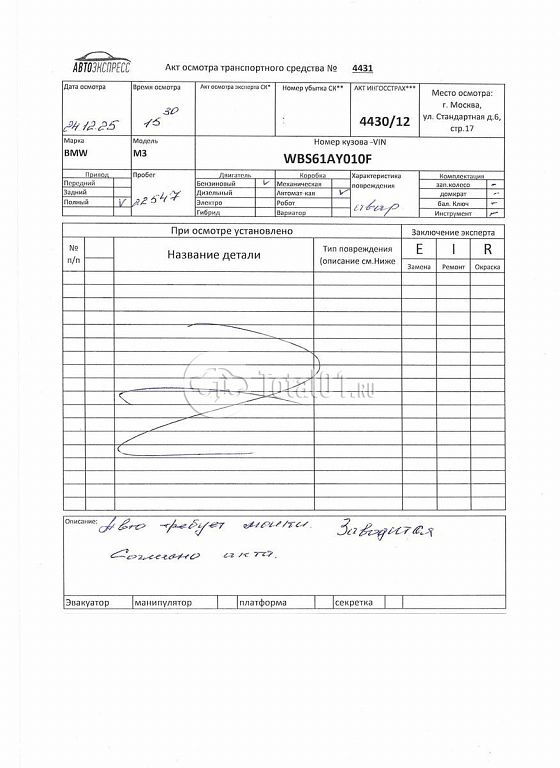 АВТОЭКСПРЕСС
Акт осмотра транспортного средства № 4431
Дата осмотра
24.12.25
Время осмотра
15 30
Акт осмотра эксперта СК*
Номер убытка СК**
АКТ ИНГОССТРАХ***
4430/12
Место осмотра:
г. Москва,
ул. Стандартная д.6,
стр.17
Марка
BMW
Модель
M3
Номер кузова -VIN
WBS61AY010F
Привод
Передний
Задний
Полный V
Пробег
22547
Двигатель
Бензиновый V
Дизельный
Электро
Гибрид
Коробка
Механическая
Автомат-кая V
Робот
Вариатор
Характеристика
повреждения
авар
Комплектация
зап.колесо –
домкрат –
бал. Ключ –
Инструмент –
При осмотре установлено
Заключение эксперта
№
п/п
Название детали
Тип повреждения
(описание см.Ниже
E I R
Замена Ремонт Окраска
Total01.RU
Описание: Авто требует мойки. Заводится
Согласно акта.
Эвакуатор манипулятор платформа секретка